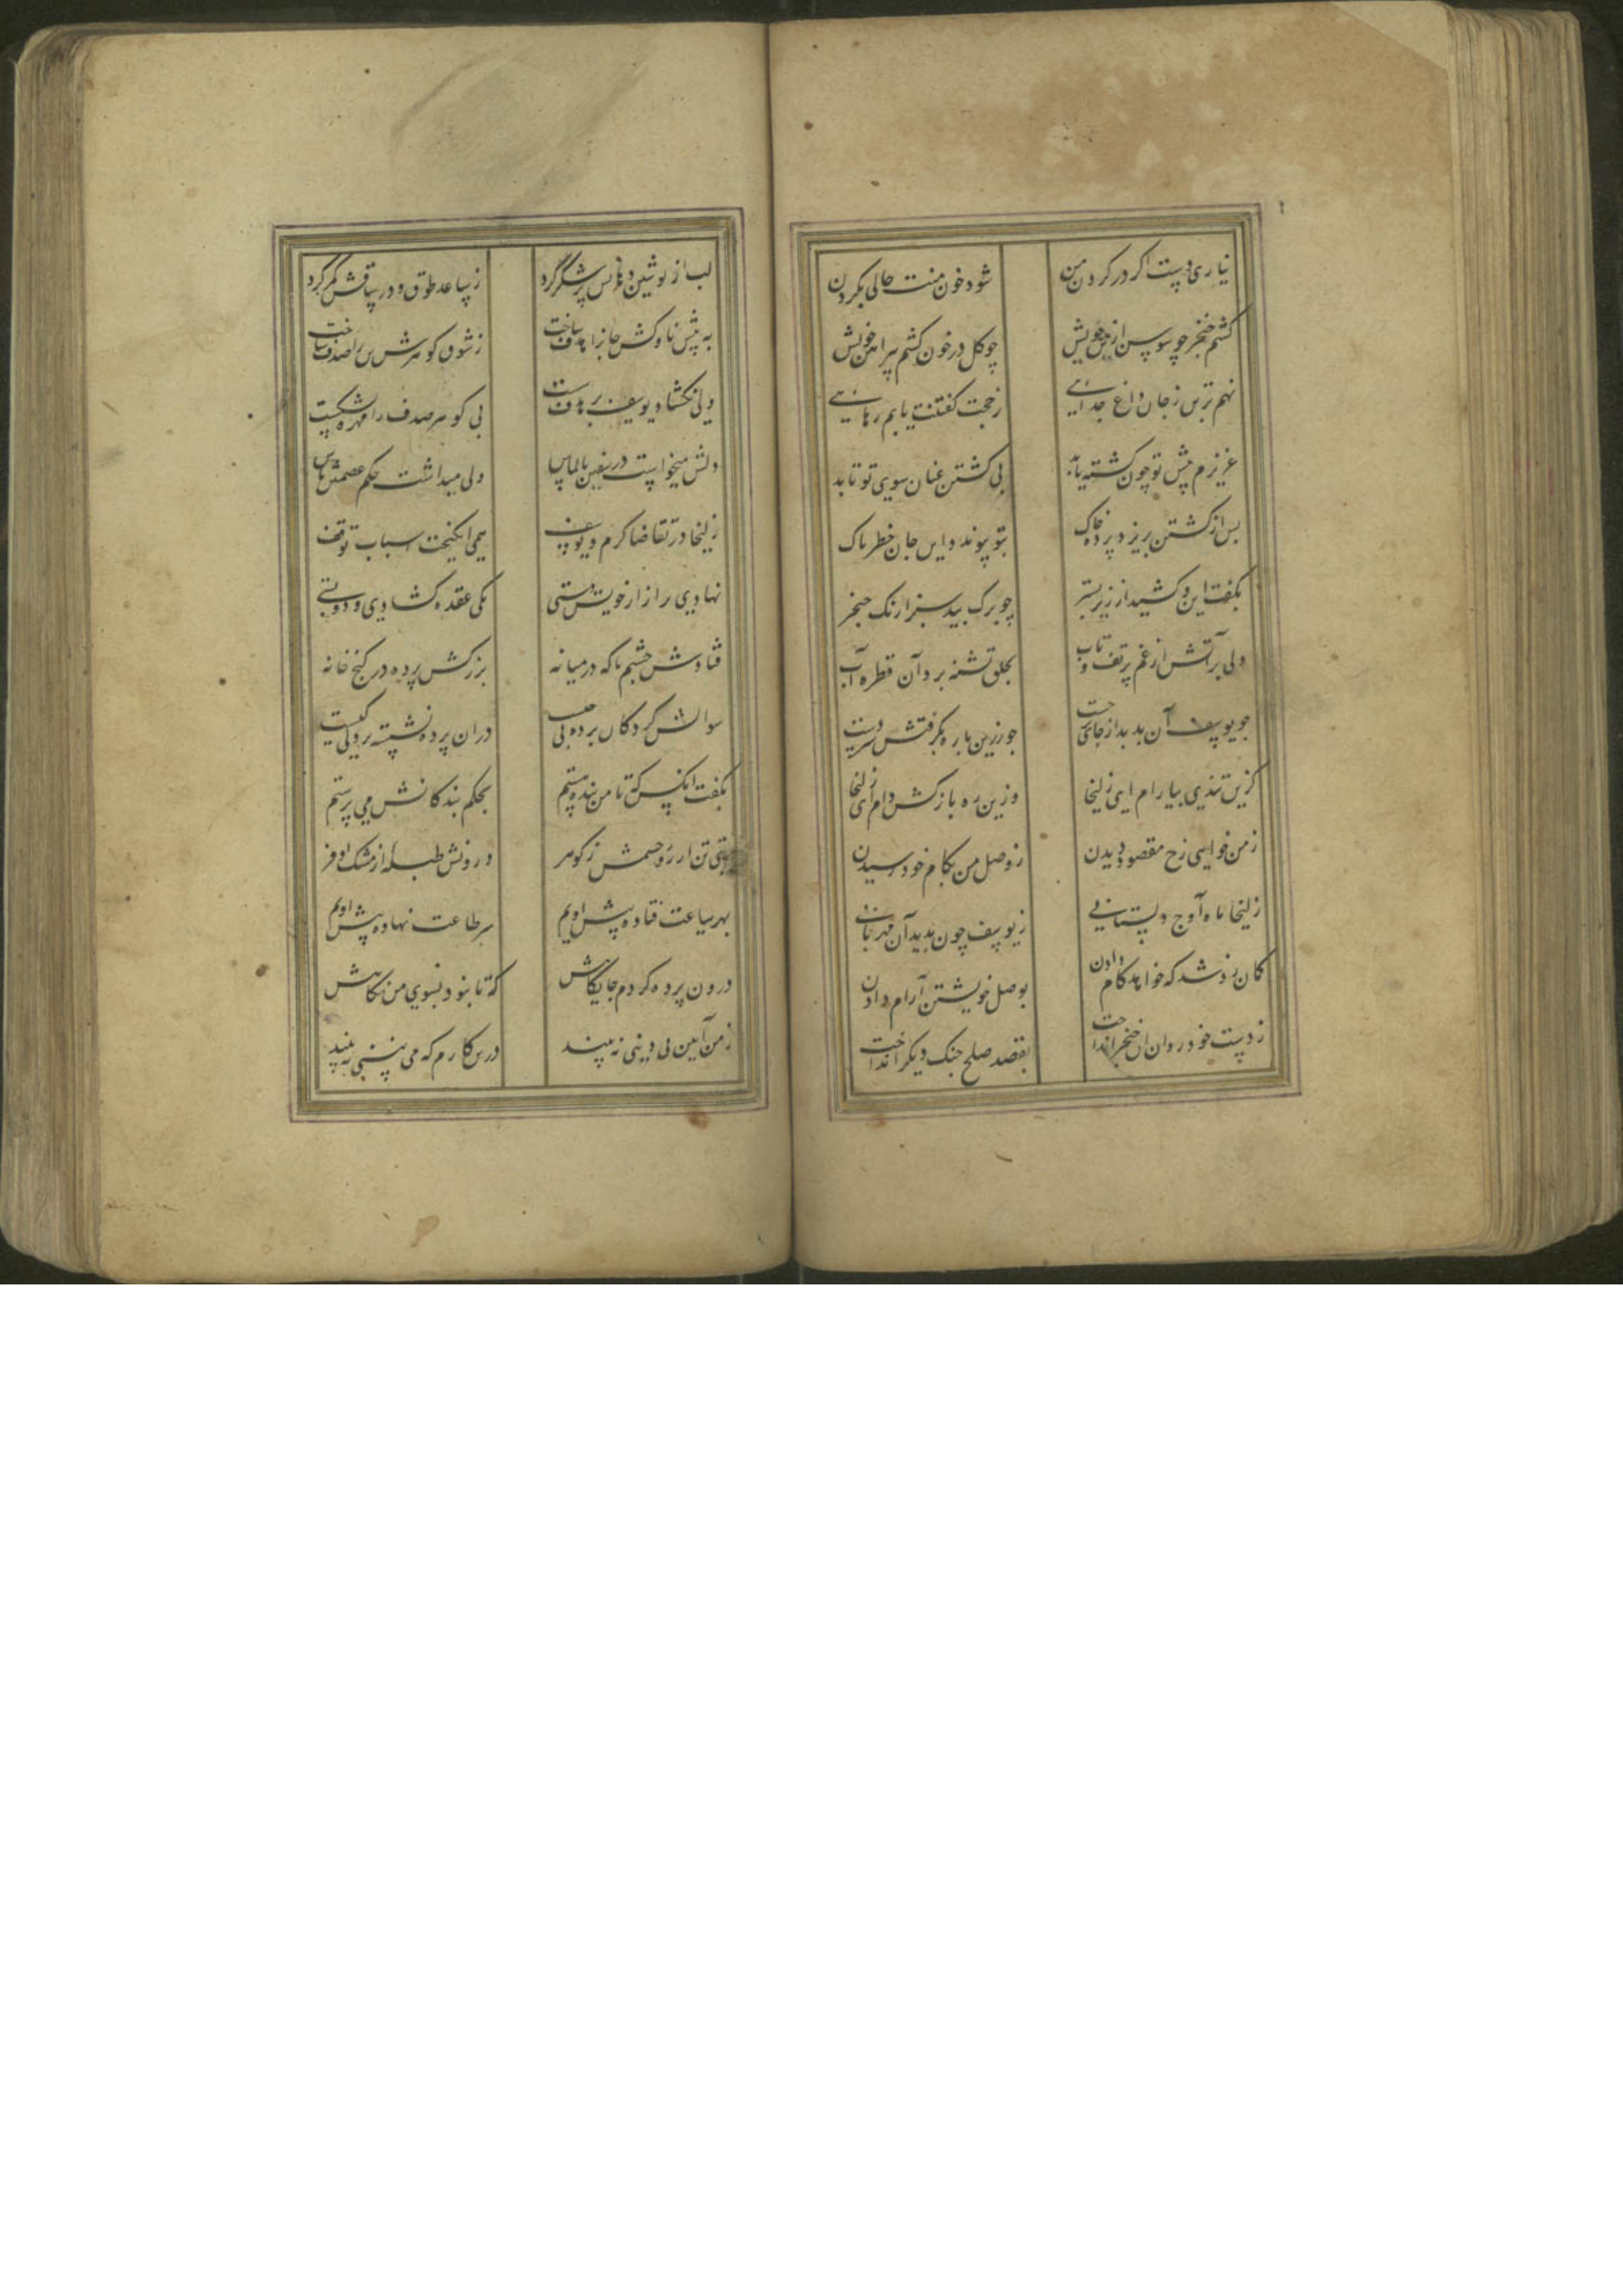 نیاری دست اگر در گردن من
شود خون منت حالی بگردن
کشم خنجر چو سوسن از تن خویش
چو گل در خون کشم پیراهن خویش
نهم ترس ز جان داغ جدایی
ز حجت گفتنت یابم رهایی
عزیزم پیش تو چون کشته یابد
پی کشتن عنان سوی تو تابد
پس از کشتن بزیر پرده خاک
بتو پیوند این جان خطرناک
بگفت این و کشید از زیر بستر
چو برگ بید سبز ارنگ خنجر
دلی پر آتش از غم پر تف و تاب
بحلق تشنه برد آن قطره آب
چو یوسف آن بدید از جای برجست
چو زرین یاره بگرفتش سر دست
کزین تندی بیارام ای زلیخا
وزین ره باز کش دام ای زلیخا
ز من خواهی رخ مقصود دیدن
ز وصل من بکام خود رسیدن
زلیخا ماه اوج دلستانی
ز یوسف چون بدید آن مهربانی
گمان زد شد که خواهد کام دادن
بوصل خویشتن آرام دادن
ز دست خود روان آن خنجر انداخت
بقصد صلح جنگ دیگر انداخت
لب از نوشین دهانش پر شکر کرد
ز ساعد طوق و در ساقش کمر کرد
به پیش ناوکش جانرا هدف ساخت
ز شوق گوهرش تن را صدف ساخت
ولی نگشاد یوسف بر هدف شست
پی گوهر صدف را مهره نشکست
دلش میخواست در سفتن بالماس
ولی میداشت حکم عصمتش پاس
زلیخا در تقاضا گرم و یوسف
همی انگیخت اسباب توقف
نهادی راز ازار خویش دستی
یکی عقده گشادی و دو بستی
فتادش چشم ناگه در میانه
بزرکش پرده در کنج خانه
سوالش کرد کان پرده پی چیست
در آن پرده نشسته پردگی کیست
بگفت آنکس که تا من بنده هستم
بحکم بندگانش می پرستم
بتی تن از زر و چشمش ز گوهر
درونش طبله از مشک اذفر
بهر ساعت فتاده پیش اویم
سر طاعت نهاده پیش اویم
درون پرده کردم جایگاهش
که تا نبود بسوی من نگاهش
ز من آیین بی دینی نه بیند
درین کارم که می بینی نه بیند